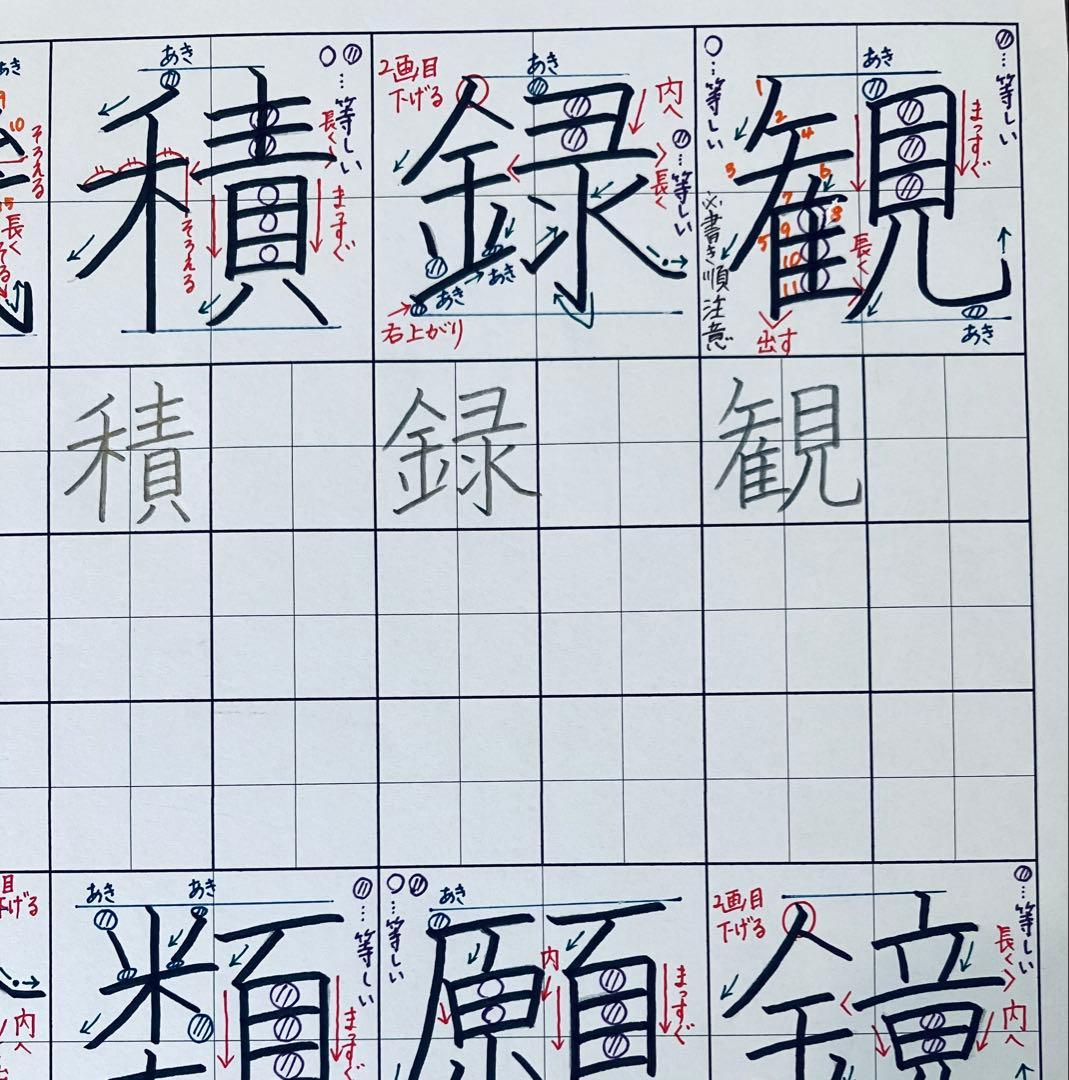 あき
積
○ ⊘…等しい
長く
まっすぐ
そろえる
2画目
下げる
あき
録
内へ
⊘…等しい
長く
あき
あき
あき
右上がり
○…等しい
あき
観
⊘…等しい
まっすぐ
1
2
3
4
5
6
7
8
9
10
11
※書き順注意
長く
出す
あき
あき
10
そろえる
長く
積
録
観
あき
あき
類
⊘…等しい
まっすぐ
○⊘…等しい
あき
願
内
まっすぐ
2画目
下げる
鏡
⊘…等しい
長く
内へ
下げる
内へ